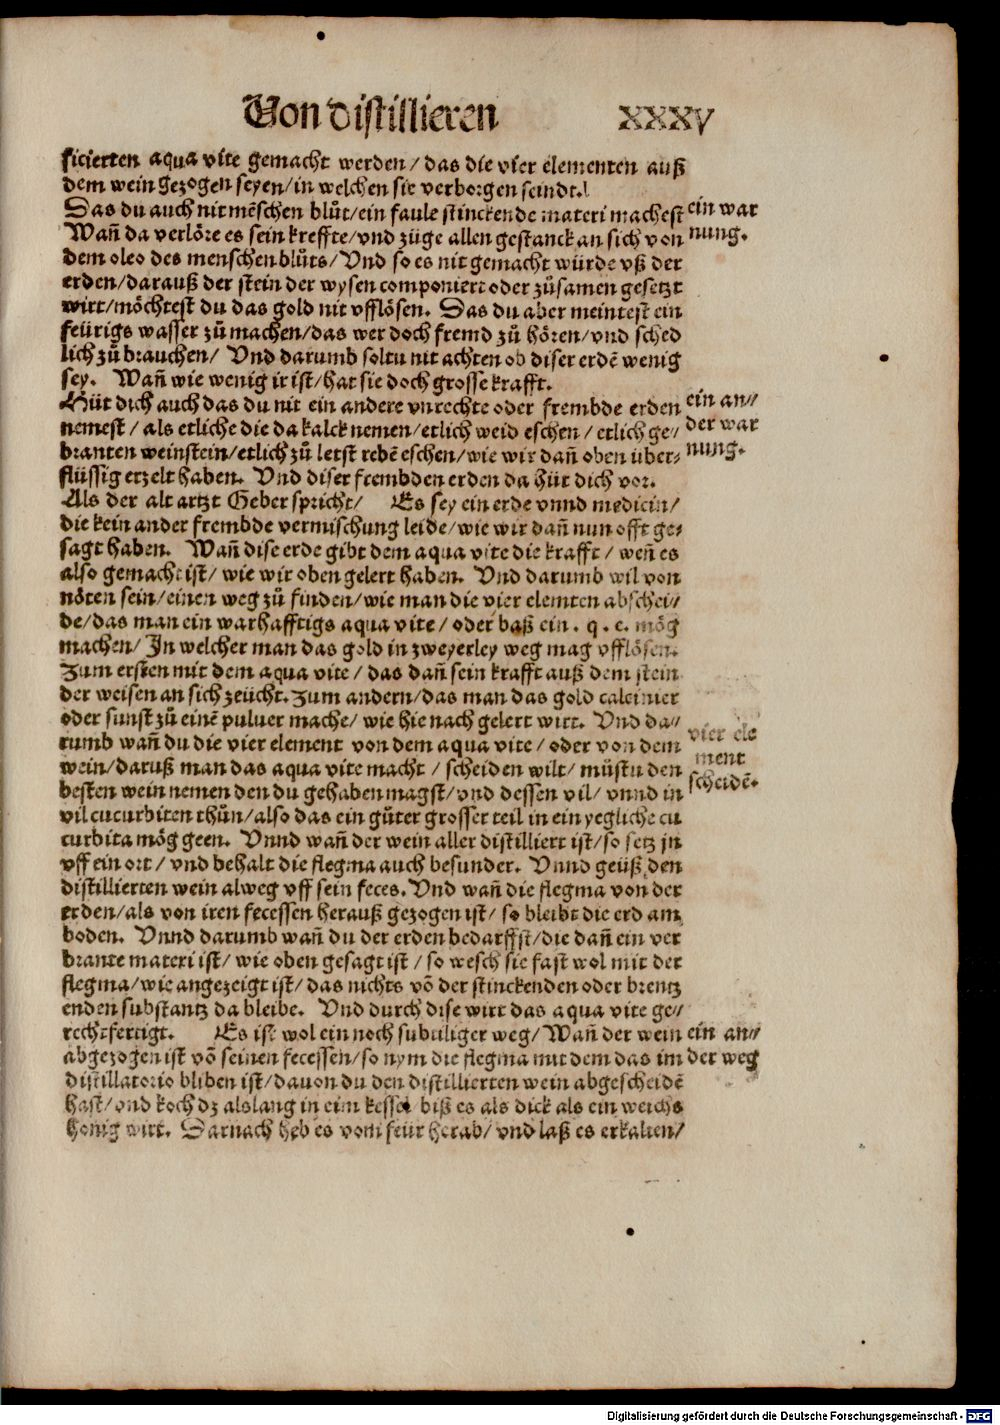 Von distillieren XXXV
ficierten aqua vite gemacht werden / das die vier elementen auß
dem wein gezogen seyen / in welchen sie verborgen seindt.
Das du auch nit mēschen blůt / ein faule stinckende materi machest
Wañ da verlöre es sein kreffte / vnd züge allen gestanck an sich von
dem oleo des menschen blůts / Vnd so es nit gemacht würde vß der
erden / darauß der stein der wysen componiert oder zůsamen gesetzt
wirt / möchtest du das gold nit vfflösen. Das du aber meintest ein
feürigs wasser zů machen / das wer doch fremd zů hören / vnd sched
lich zů brauchen / Vnd darumb soltu nit achten ob diser erdē wenig
sey. Wañ wie wenig ir ist / hat sie doch grosse krafft.
ein war
nung.
Hüt dich auch das du nit ein andere vnrechte oder frembde erden
nemest / als etliche die da kalck nemen / etlich weid eschen / etlich ge//
branten weinstein / etlich zů letst rebē eschen / wie wir dañ oben über-
flüssig erzelt haben. Vnd diser frembden erden da hüt dich vor.
ein an//
der war
nung.
Als der alt artzt Geber spricht / Es sey ein erde vnnd medicin /
die kein ander frembde vermischung leide / wie wir dañ nun offt ge-
sagt haben. Wañ dise erde gibt dem aqua vite die krafft / weñ es
also gemacht ist / wie wir oben gelert haben. Vnd darumb wil von
nöten sein / einen weg zů finden / wie man die vier elemten abschei//
de / das man ein warhafftigs aqua vite / oder baß ein . q . e. mög
machen / In welcher man das gold in zweyerley weg mag vfflösen.
Zum ersten mit dem aqua vite / das dañ sein krafft auß dem stein
der weisen an sich zeücht. Zum andern / das man das gold calcinier
oder sunst zů einē puluer mache / wie hie nach gelert wirt. Vnd da//
rumb wañ du die vier element von dem aqua vite / oder von dem
wein / daruß man das aqua vite macht / scheiden wilt / müstu den
besten wein nemen den du gehaben magst / vnd dessen vil / vnnd in
vil cucurbiten thůn / also das ein gůter grosser teil in ein yegliche cu
curbita mög geen. Vnnd wañ der wein aller distilliert ist / so setz jn
vff ein ort / vnd behalt die flegma auch besunder. Vnnd geüß den
distillierten wein alweg vff sein feces. Vnd wañ die flegma von der
erden / als von iren fecessen herauß gezogen ist / so bleibt die erd am
boden. Vnnd darumb wañ du der erden bedarffst / die dañ ein ver
brante materi ist / wie oben gesagt ist / so wesch sie fast wol mit der
flegma / wie angezeigt ist / das nichts vō der stinckenden oder brentz
enden substantz da bleibe. Vnd durch dise wirt das aqua vite ge//
rechtfertigt. Es ist wol ein noch subtiliger weg / Wañ der wein
abgezogen ist vō seinen fecessen / so nym die flegma mit dem das im
distillatorio bliben ist / dauon du den distillierten wein abgescheidē
hast / vnd koch dz alslang in eim kessel biß es als dick als ein weichs
honig wirt. Darnach heb es vom feür herab / vnd laß es erkalten /
vier ele
ment
scheidē-
ein an//
der weg
Digitalisierung gefördert durch die Deutsche Forschungsgemeinschaft - DFG